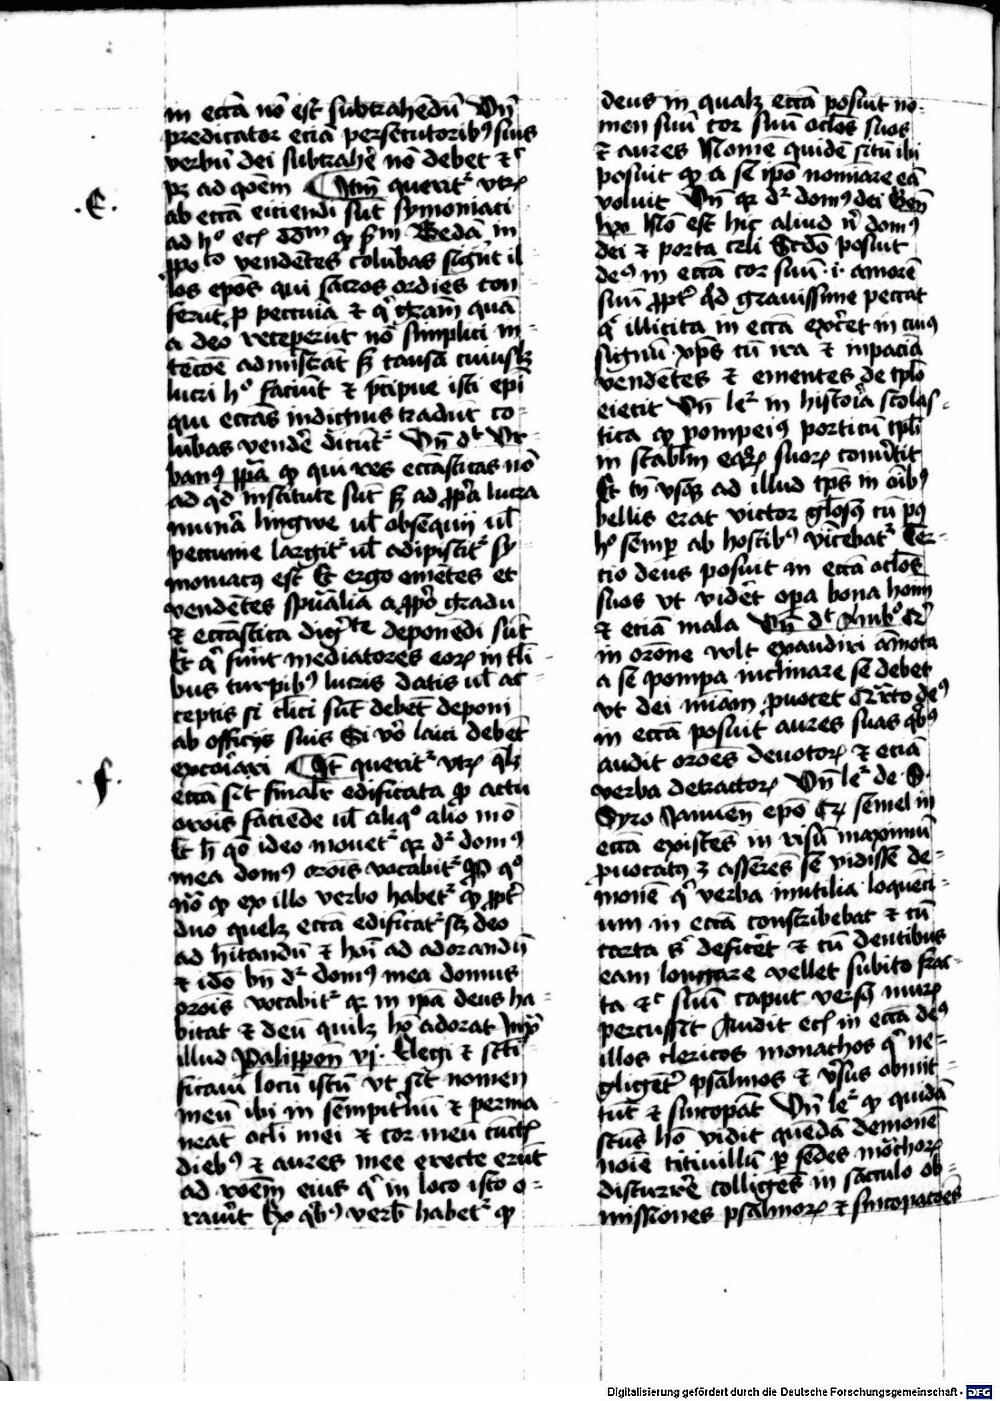 in ecc̄a nō est̄ subtrahēdū Vn̄
predicator eciā persecutoribꝰ suis
verbū dei subtrahe᷑ nō debet ⁊c̄
pꝫ ad qōem ¶ Itm̄ querit᷑ vtrꝫ
.E.
ab ecc̄a eiciendi sūt symoniaci
ad hͦ ecꝫ dd̄m ꝙ sm̄ Bedā in
vendētes colūbas sign̄t il
los epōs qui sacros ordīes con
ferūt ꝑ peccuīā ⁊ qͥ gr̄am quā
a deo receperūt nō simplici in-
tēcōe admīstrāt sꝫ causā cuiuslꝫ
lucri hͦ faciūt ⁊ p̄cipue isti epī
qui ecc̄as indignis tradūt co-
lūbas vende᷑ dicūt᷑ Vn̄ dͭ Vr-
banꝰ ꝙ qui res ecc̄asticas nō
ad qͥd institute sūt sꝫ ad ꝓpͥa lucra
mun̄a lingwe ul̄ obsequij ul̄
peccunie largit᷑ ul̄ adipiscit᷑ sy
moniacꝰ est Et ergo emētes et
vendētes spūalia a ꝓpͦ gradu
⁊ ecc̄astica digͭte deponēdi sūt
Et qͥ fuer̄t mediatores eorꝫ in tͣli
bus turpibꝰ lucris datis ul̄ ac-
ceptis si cl̄ici sūt debēt deponi
ab officijs suis Si vͦo laici debēt
excōicari ¶ Itē querit᷑ vtrꝫ qͣlꝫ
.f.
ecc̄a sit finalr̄ edificata ꝙ actu
orōis faciende ul̄ aliqͦ alio mō
Et h̄ qō ideo mouet᷑ qꝛ dr̄ domꝰ
mea domꝰ orōis vocabit᷑
ꝙ ex illo verbo habet᷑ ꝙ ꝓpt̄
duo quelꝫ ecc̄a edificat᷑ sꝫ deo
ad hītandū ⁊ hoī ad adorandū
⁊ idō bn̄ dr̄ domꝰ mea domus
orōis vocabit᷑ qꝛ in ip̄a deus ha-
bitat ⁊ deū quilꝫ hō adorat
illud Palippon̄ vj. Elegi ⁊ sc̄ti
ficaui locū istū vt sit nomen
meū ibi in sempitͥnū ⁊ perma
neāt ocl̄i mei ⁊ cor meū cūctꝫ
diebꝰ ⁊ aures mee erecte erūt
ad roēm eius qͥ in loco isto o-
rauͥt Ex qͥbꝰ verb̄ habet᷑ ꝙ
deus in qualꝫ ecc̄a posuit no-
men suū cor suū ocl̄os suos
⁊ aures Nomē quidē sctū ibi
posuit ꝙ a se ipō nominare eā
voluit Vn̄ qꝛ dr̄ domꝰ dei Gen̄
Nō est hic aliud nͥ domꝰ
dei ⁊ porta celi Scdō posuit
deꝰ in ecc̄a cor suū .i. amorē
suū ꝓpt̄ qͥd grauissime peccat
qͥ illicita in ecc̄a exͥcet in cuiꝰ
signū xp̄s cū ira ⁊ inpaciā
vendētes ⁊ ementes de tp̄lo
eiecit Vn̄ le᷑ in historia scolas-
tica ꝙ pompeiꝰ porticū tp̄li
in stablm̄ eqͦrꝫ suorꝫ conūtit
Et tn̄ vsqꝫ ad illud tp̄s in oībꝰ
bellis erat victor gl̄osꝰ cū pꝰ
hͦ semꝑ ab hostibꝰ vīcebat᷑ Ter-
cio deus posuit in ecc̄a ocl̄os
suos vt videt̄ opͣa bona homī
⁊ eciā mala Vn̄ dͭ Ambͦ
in orōne vult exaudiri am̄ota
a se pompa inclinare se debet
vt dei mīam ꝓuocet Qͣrto deꝰ
in ecc̄a posuit aures suas qͥbꝰ
audit orōes deuotorꝫ ⁊ eciā
verba detractorꝫ Vn̄ le᷑ de S.
Syro Januen̄ epō qꝫ semel in
ecc̄a existēs in risū maximū
ꝓuocatꝰ ꝫ asserēs se vidisse de-
monē qͥ verba inutilia loquēci-
um in ecc̄a conscribebat ⁊ cū
carta sͥ deficet̄ ⁊ cū dentibus
eam longare vellet subito frac-
ta ⁊c̄ suū caput versꝰ murꝫ
percussit Audit ecꝫ in ecc̄a deꝰ
illos clericos monachos qͥ ne-
gligent᷑ psalmos ⁊ vͥsus obmit-
tūt ⁊ sincopāt Vn̄ le᷑ ꝙ quidā
sctus hō vidit quēdā demonē
noīe titiuillū ꝑ sedes mōchorꝫ
discurre᷑e colligēs in sacculo ob-
missiones psalmorꝫ ⁊ sincopacōes
Digitalisierung gefördert durch die Deutsche Forschungsgemeinschaft - DFG